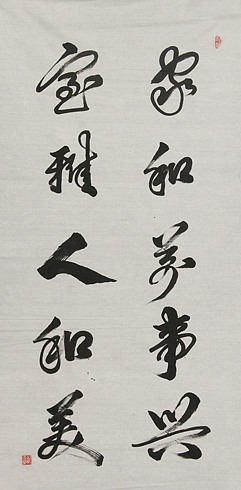 家和万事兴
室雅人和美